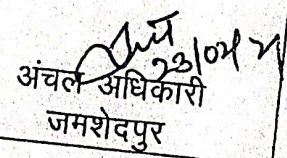 23/04/21
अंचल अधिकारी
जमशेदपुर